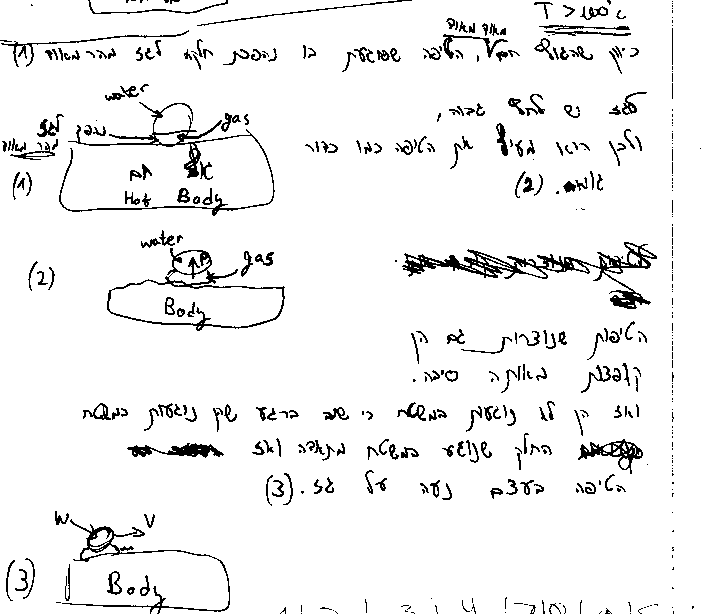 T > 100°c
מאוד מאוד
כיוון שהגוף חם, הטיפה שפוגעת בו נהפכת חלקה לגז מהר מאוד (1)
water
gas
לגז
מהר מאוד
(1)
גוף חם
Hot Body
לגז יש לחץ גבוה,
ולכן הוא מעיף את הטיפה כמו כדור
גומי. (2)
(2)
water
P
gas
Body
הטיפות שנוצרות גם הן
קופצות מאותה סיבה.
ואז הן לא נוגעות במשטח כי שוב ברגע שהן נוגעות במשטח
החלק שנוגע במשטח מתאדה ואז
הטיפה בעצם נעה על גז. (3)
W
V
(3)
Body